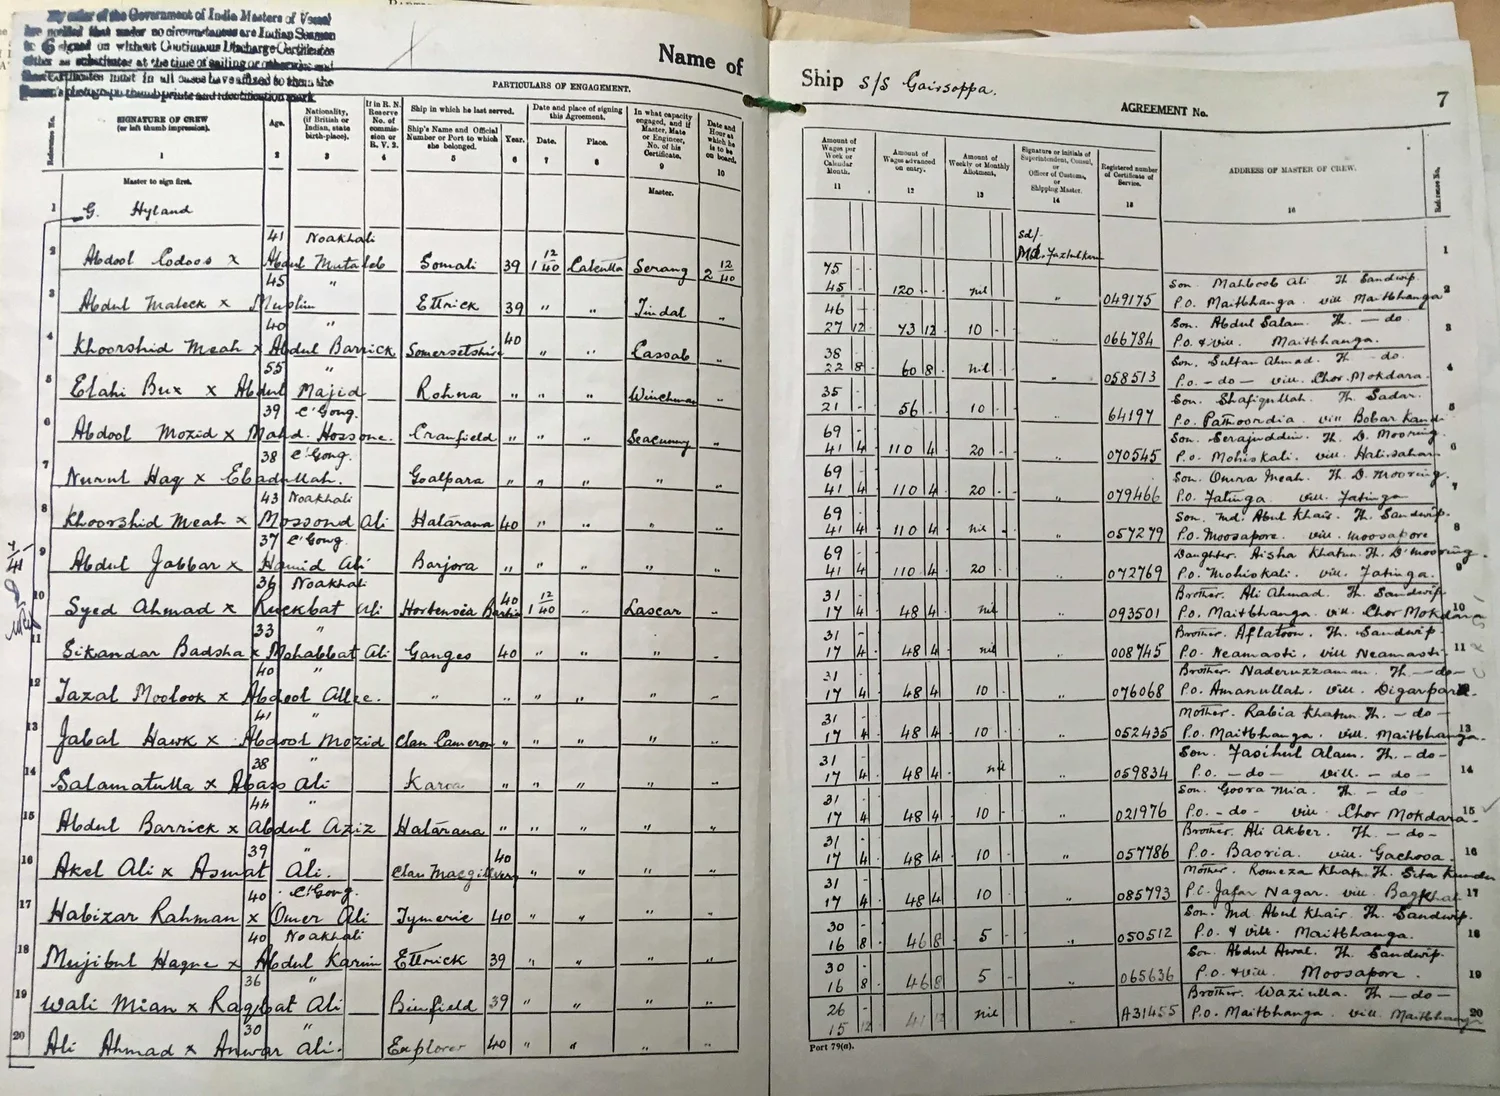 By order of the Government of India Masters of Vessel
are notified that under no circumstances are Indian Seamen
to be signed on without Continuous Discharge Certificates
either as substitutes at the time of sailing or otherwise and
these Certificates must in all cases have affixed to them the
photograph thumb prints and identification mark
Name of
Ship S/S Gairsoppa.
PARTICULARS OF ENGAGEMENT.
AGREEMENT No.
7
Reference No.
SIGNATURE OF CREW
(or left thumb impression).
1
Age.
2
Nationality,
(if British or
Indian, state
birth-place).
3
If in R. N.
Reserve
No. of
commis-
sion or
R. V. 2.
4
Ship in which he last served.
Ship's Name and Official
Number or Port to which
she belonged.
5
Year.
6
Date and place of signing
this Agreement.
Date.
7
Place.
8
In what capacity
engaged, and if
Master, Mate
or Engineer,
No. of his
Certificate.
9
Date and
Hour at
which he
is to be
on board.
10
Amount of
Wages per
Week or
Calendar
Month.
11
Amount of
Wages advanced
on entry.
12
Amount of
Weekly or Monthly
Allotment.
13
Signature or initials of
Superintendent, Consul,
or
Officer of Customs,
or
Shipping Master.
14
Registered number
of Certificate of
Service.
15
ADDRESS OF MASTER OF CREW.
16
Reference No.
Master to sign first.
Master.
1 G. Hyland
sd/-
Md. Fazlul
1
41 Noakhali
2 Abdool Codoos x Abdul Mutaleb Somali 39 1 12/40 Calcutta Serang 2 12/40
75 - -
45 - - 120 - - nil " 049175
Son. Mahboob Ali Th. Sandwip.
P.O. Maitbhanga vill Maitbhanga 2
45 "
3 Abdul Maleek x Muslim Ettrick 39 " " Tindal "
46 -
27 12 73 12 10 - - " 066784
Son. Abdul Salam. Th. - do
P.O. & vill. Maitbhanga. 3
40 "
4 Khoorshid Meah x Abdul Barrick Somersetshire 40 " " Cassab "
38 -
22 8 60 8 nil " 058513
Son. Sultan Ahmad. Th - do-
P.O. - do - vill. Chor. Mokdara. 4
55 "
5 Elahi Bux x Abdul Majid Rohna " " " Winchman "
35 -
21 - 56 - 10 - " 64197
Son. Shafiqullah. Th. Sadar.
vill Bobar Kandi 5
39 C'Gong.
6 Abdool Mozid x Mahd. Hossone. Cranfield " " " Seacunny "
69 -
41 4 110 4 20 - - " 070545
Son. Serajuddin. Th. D. Mooring.
P.O. Mohiskali. vill. Halisahar 6
38 C'Gong.
7 Nurul Haq x Ebadullah. Goalpara " " " " "
69 -
41 4 110 4 20 - - " 079466
Son. Omra Meah. Th D. Mooring.
P.O. Fatinga. vill. Fatinga 7
43 Noakhali
8 Khoorshid Meah x Mossond Ali Hatarana 40 " " " "
69 -
41 4 110 4 nil - " 057279
Son. Md. Abul Khair. Th. Sandwip.
P.O. Moosapore. vill. Moosapore 8
37 C'Gong.
9 Abdul Jabbar x Hamid Ali Barjora " " " " "
69 -
41 4 110 4 20 - - " 072769
Daughter. Aisha Khatun. Th. D'Mooring.
P.O. Mohiskali. vill. Fatinga. 9
36 Noakhali
10 Syed Ahmad x Ruckbat Ali Hortensia 40 1 12/40 " Lascar "
31 -
17 4 48 4 nil " 093501
Brother. Ali Ahmad. Th. Sandwip
P.O. Maitbhanga. vill Chor Mokdara 10
33 "
11 Sikandar Badsha x Mohabbat Ali Ganges 40 " " " "
31 -
17 4 48 4 nil " 008745
Brother. Aflatoon. Th. Sandwip.
P.O. Neamasti. vill Neamasti 11
40 "
12 Tazal Moolook x Abdool Allee. " " " " " "
31 -
17 4 48 4 10 - " 076068
Brother. Naderuzzaman. Th. - do -
P.O. Amanullah. vill. Digarpara. 12
41 "
13 Jabal Hawk x Abdool Mozid Clan Cameron " " " " "
31 -
17 4 48 4 10 - " 052435
Mother. Rabia Khatun. Th. - do -
P.O. Maitbhanga. vill. Maitbhanga. 13
38 "
14 Salamatulla x Abass Ali Karoa " " " " "
31 -
17 4 48 4 nil " 059834
Son. Fasihul Alam. Th. - do -
P.O. - do - vill. - do - 14
44 "
15 Abdul Barrick x Abdul Aziz Hatarana " " " " "
31 -
17 4 48 4 10 - " 021976
Son. Goora Mia. Th. - do
P.O. - do vill Chor Mokdara. 15
39 "
16 Akel Ali x Asmat Ali. Clan Macgillivery 40 " " " "
31 -
17 4 48 4 10 " 057786
Brother. Ali Akber. Th. - do -
P.O. Baoria. vill. Gachooa. 16
40 C'Gong.
17 Habizar Rahman x Omer Ali Tymeric 40 " " " "
31 -
17 4 48 4 10 - " 085793
Mother. Romeza Khatun. Th. Sita Kundu
Jafar Nagar. vill. 17
40 Noakhali
18 Mujibul Haque x Abdul Karim Ettrick 39 " " " "
30 -
16 8 46 8 5 - " 050512
Son. Md Abul Khair. Th. Sandwip.
P.O. & vill. Maitbhanga. 18
36 "
19 Wali Mian x Raqybat Ali Binfield 39 " " " "
30 -
16 8 46 8 5 - " 065636
Son. Abdul Awal. Th. Sandwip.
P.O. & vill. Moosapore. 19
30 "
20 Ali Ahmad x Anwar Ali. Explorer 40 " " " "
26 -
15 12 41 12 nil " A31455
Brother. Waziulla. Th - do -
P.O. Maitbhanga. vill. Maitbhanga 20
Port 79(a).